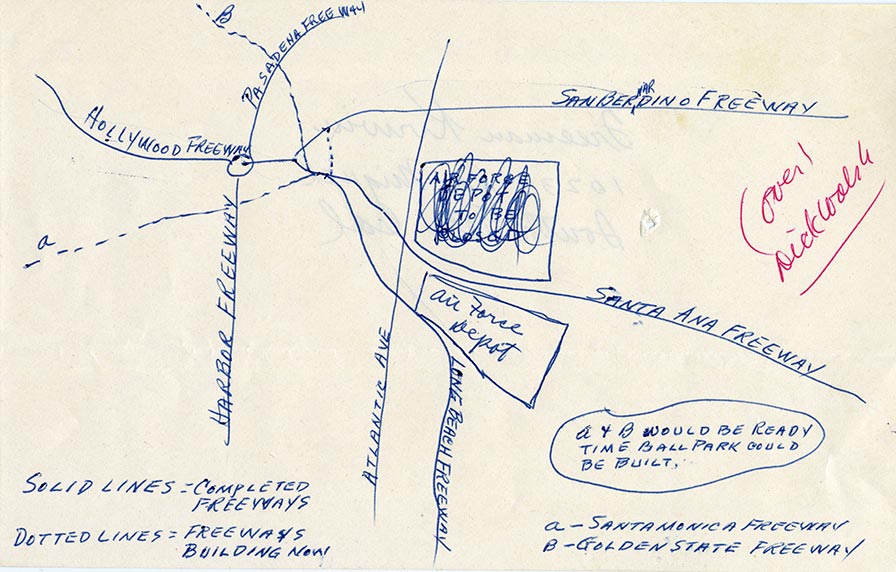 B
PASADENA FREEWAY
SAN BERDINO FREEWAY
NAR
HOLLYWOOD FREEWAY
AIR FORCE
DEPOT
TO BE
CLOSED
(over)
Dick Walsh
a
HARBOR FREEWAY
Air Force
Depot
SANTA ANA FREEWAY
ATLANTIC AVE
LONG BEACH FREEWAY
a & B WOULD BE READY
TIME BALL PARK COULD
BE BUILT.
SOLID LINES = COMPLETED
FREEWAYS
DOTTED LINES = FREEWAYS
BUILDING NOW
a - SANTA MONICA FREEWAY
B - GOLDEN STATE FREEWAY